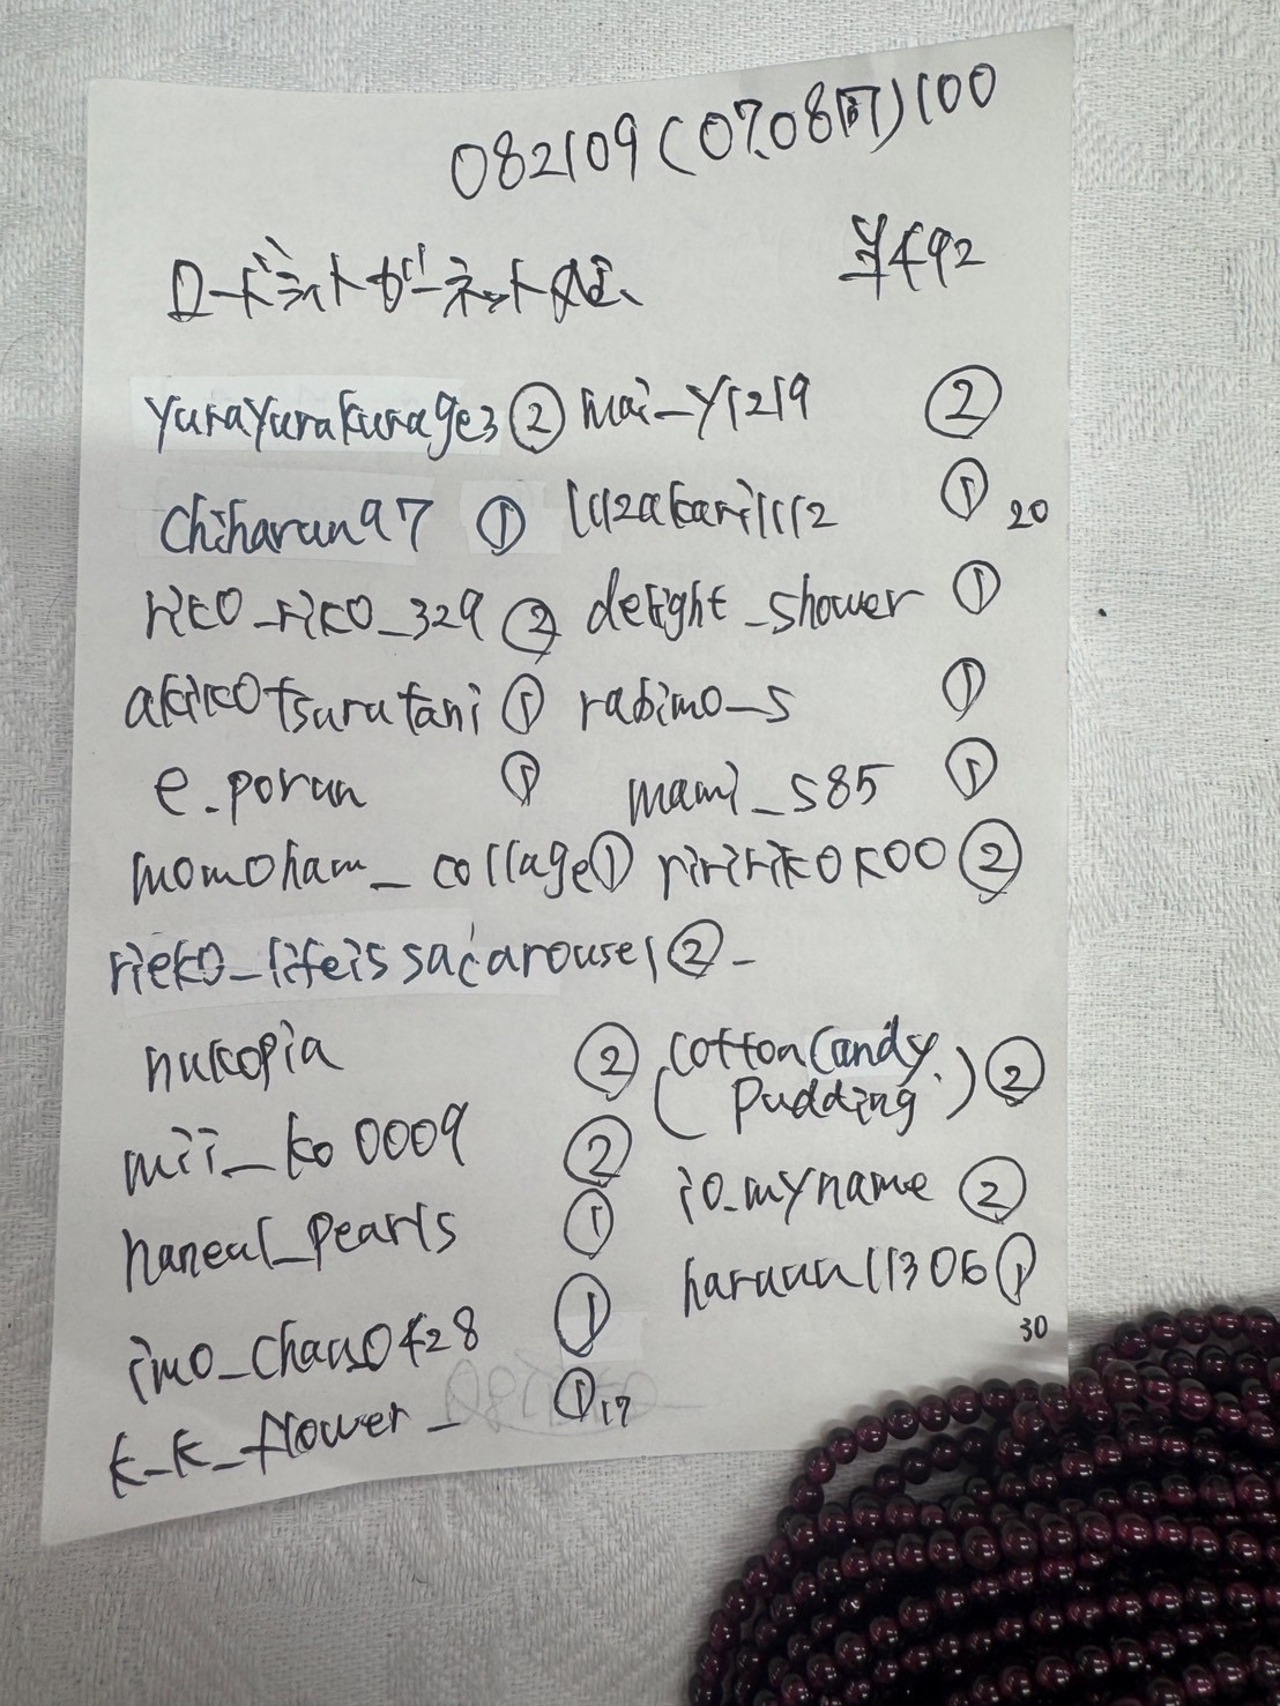 082109(0708同)100
ロードライトガーネット丸
¥492
yurayurakurage3 ② mai_y1219 ②
chiharun97 ① 1112akari1112 ① 20
riko_riko_329 ② delight_shower ①
akikotsurutani ① rabimo_s ①
e.porun ① mami_s85 ①
momoham_collage ① riririkokoo ②
rieko_lifeissacarousel ② -
nukopia ② cottoncandy
(pudding) ②
mii_ko0009 ② io.myname ②
haneul_pearls ① haruun11306 ①
imo_chan0428 ① 30
k_k_flower_ ① 17